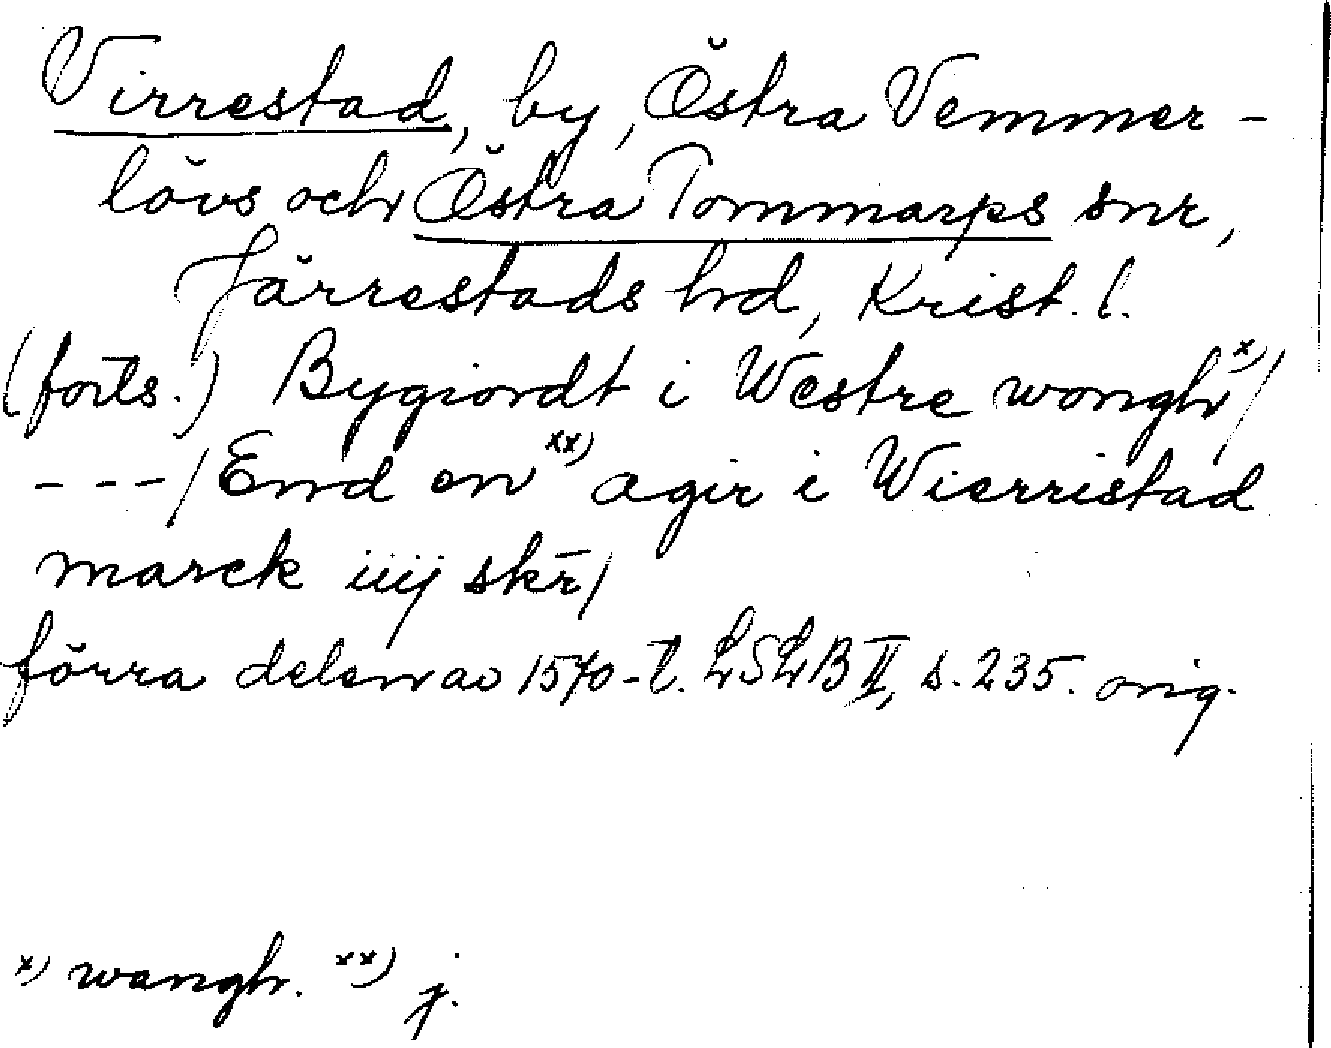 Virrestad, by, Östra Vemmer-
lövs och Östra Tommarps snr,
Järrestads hd, Krist. l.
(forts.) Bygiordt i Westre wongh x)/
---/ End en xx) agir i Wierristad
marck iiij skr̄/
förra delen av 1570-t. LSLB II, s. 235. orig.
x) wangh. xx) j.